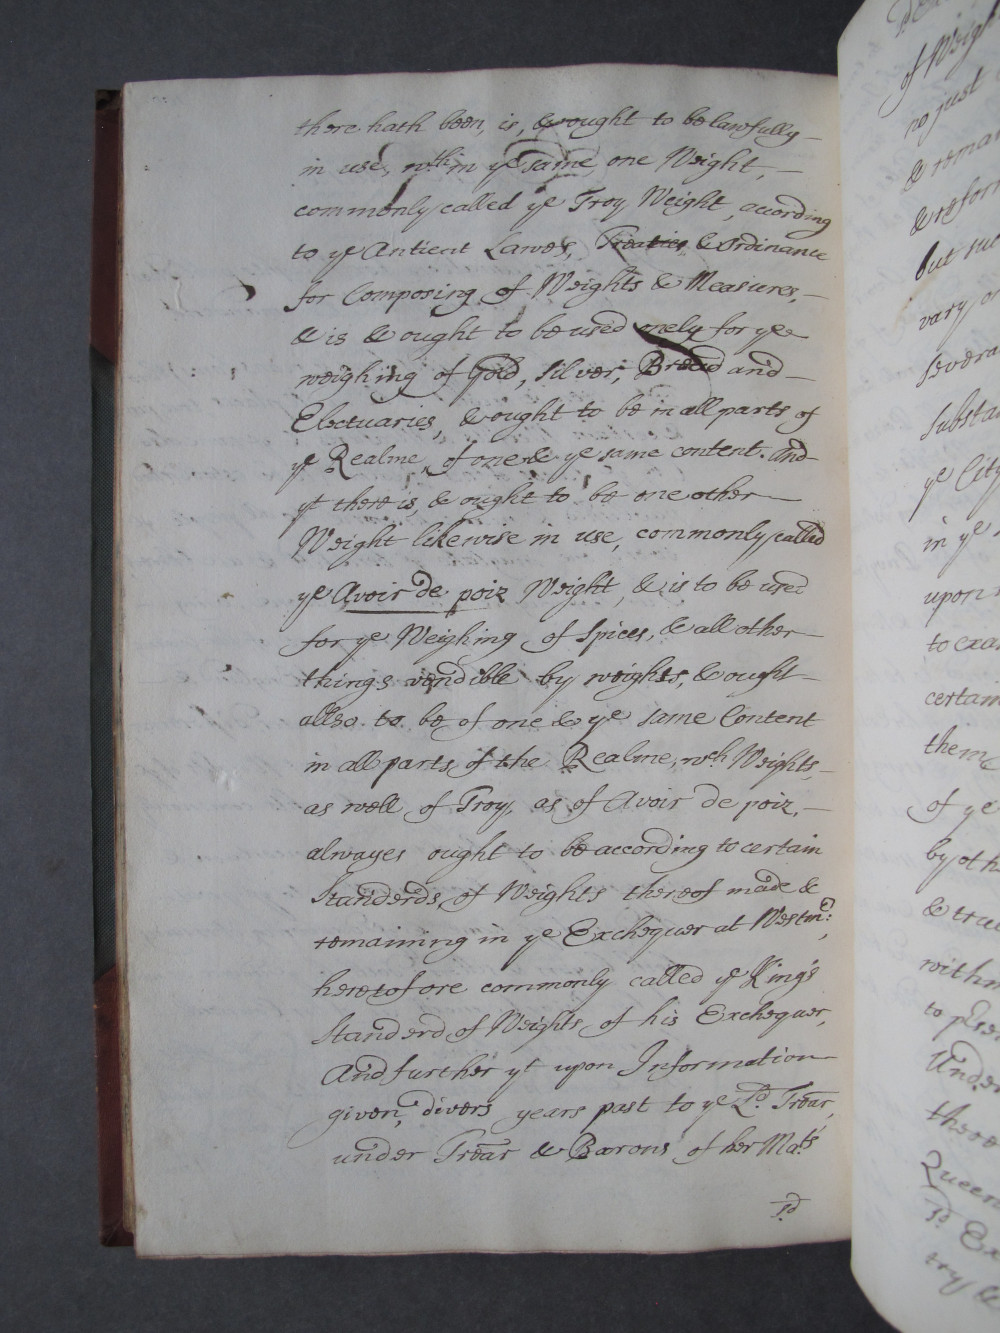 there hath been, is, & ought to be lawfully
in use, wthin ye same one Weight,
commonly called ye Troy Weight, according
to ye Antient Lawes, Treaties & Ordinance
for Composing of Weights & Measures,
& is & ought to be used onely for ye
weighing of Gold, Silver, Bread and
Electuaries, & ought to be in all parts of
ye Realme, of one & ye same content. And
yt there is, & ought to be one other
Weight likewise in use, commonly called
ye Avoir de poiz Weight, & is to be used
for ye Weighing of Spices, & all other
things vendible by weights, & ought
allso to be of one & ye same Content
in all parts of the Realme, wch Weights,
as well of Troy, as of Avoir de poiz,
alwayes ought to be according to certain
Standerds, of Weights thereof made &
remaining in ye Exchequer at Westmr:,
heretofore commonly called ye King's
Standerd of Weights of his Exchequer,
And further yt upon Information
given, divers years past to ye Ld. Trear,
under Trear & Barons of her Mats
sd
of Weigh
no just
& remai
& refor
but su
vary, or
severa
substa
ye City
in ye
upon
to exa
certain
them
of ye
by oth
& tru
within
to pse
Under
there
Queen
sd Ex
try &